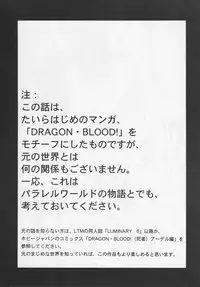 注：
この話は、
たいらはじめのマンガ、
「DRAGON・BLOOD!」を
モチーフにしたものですが、
元の世界とは
何の関係もございません。
一応、これは
パラレルワールドの物語とでも、
考えておいてください。
元の話を知らない方は、LTMの同人誌「LUMINARY 6」以降か、
ホビージャパンのコミックス「DRAGON・BLOOD!（死者）アーデル編」を
参照してください。
元のまじめな世界を知っていれば、この作品もより楽しめると思います。